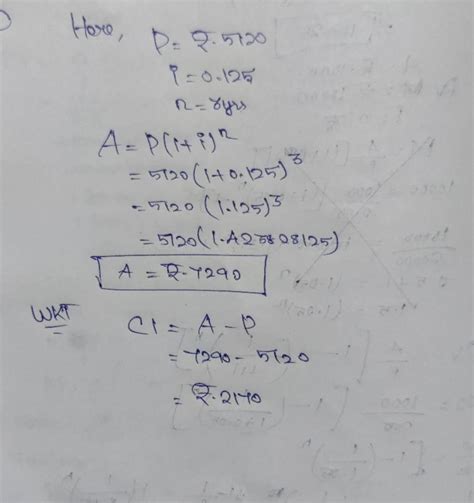 Here,
P = ₹.5120
i = 0.125
n = 3yrs
A = P(1+i)^n
= 5120(1+0.125)^3
= 5120 (1.125)^3
= 5120(1.423808125)
A = ₹.7290
WKT
CI = A-P
= 7290-5120
= ₹.2170